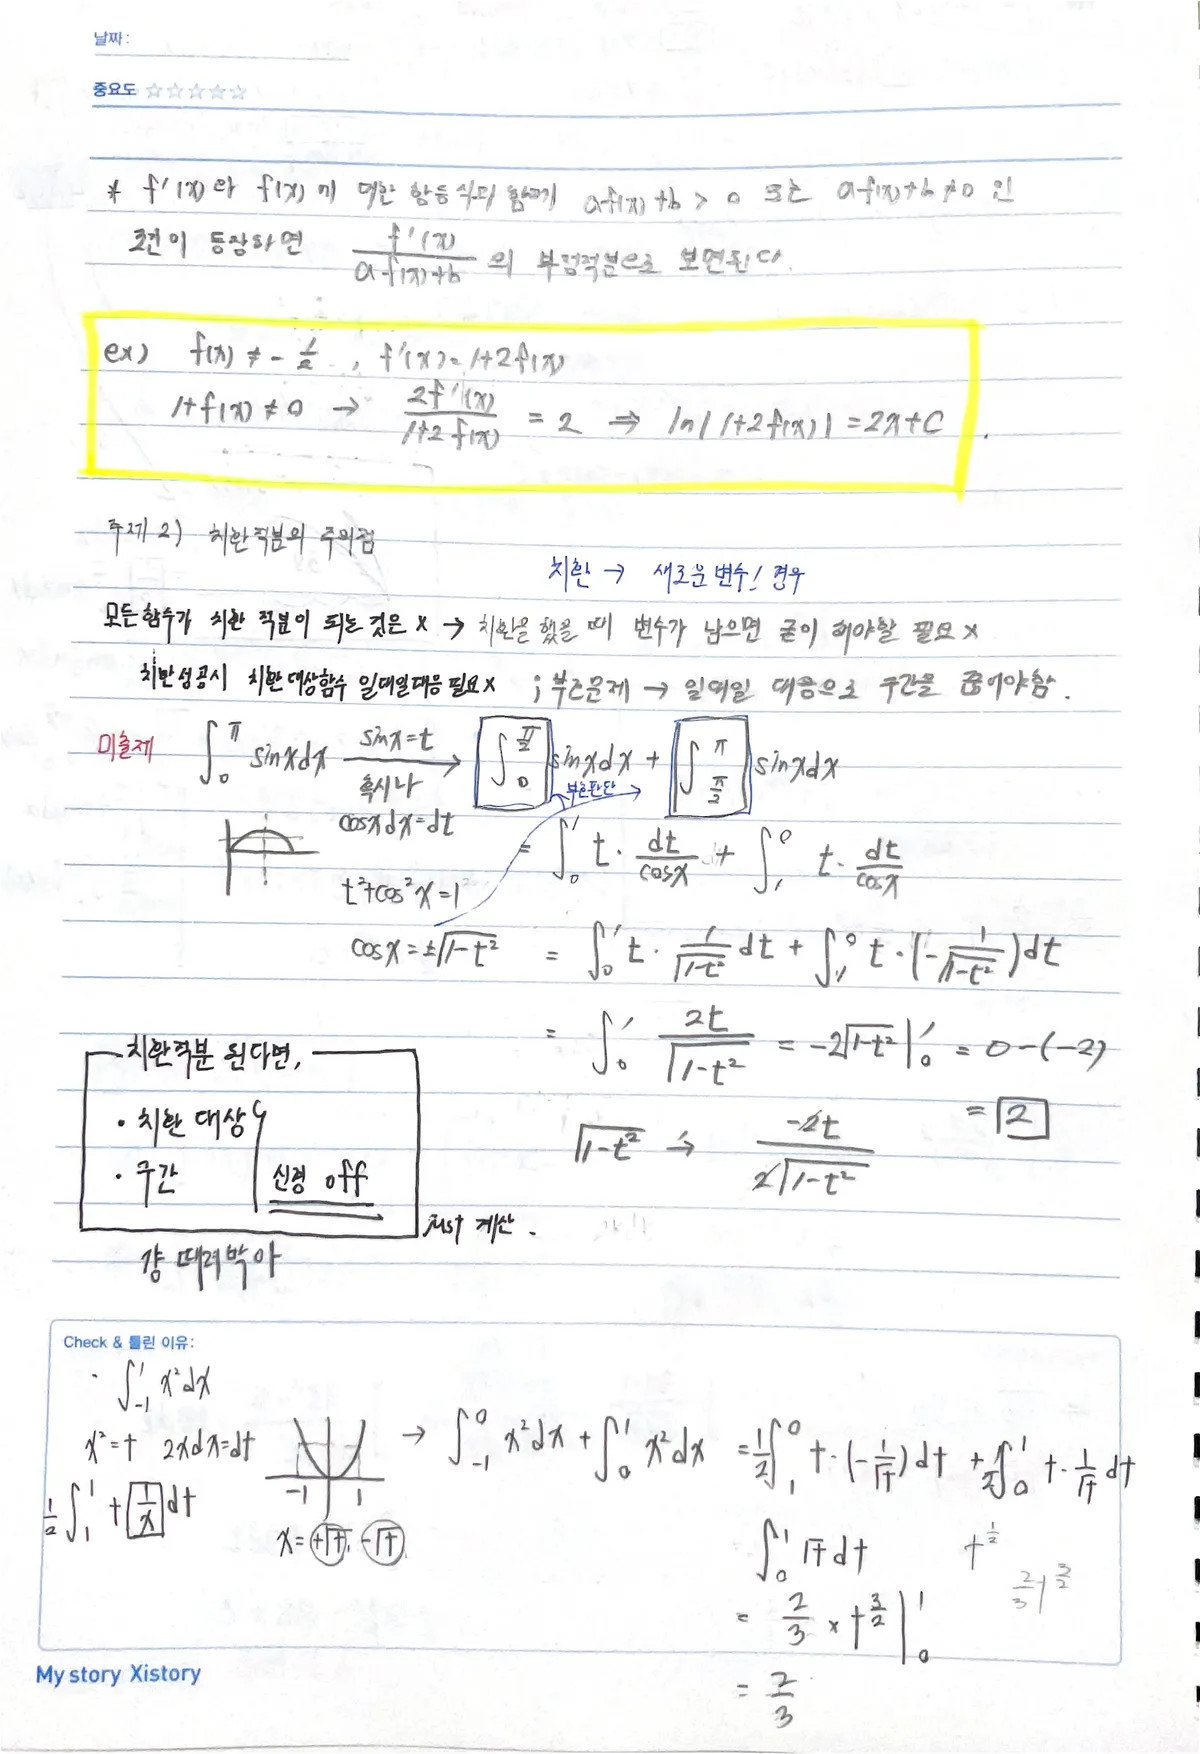 날짜:
중요도 ☆☆☆☆☆
* f'(x)와 f(x)에 대한 항등식과 함께 af(x)+b > 0 또는 af(x)+b≠0 인
조건이 등장하면 f'(x)/(af(x)+b) 의 부정적분으로 보면된다.
ex) f(x) ≠ -1/2, f'(x) = 1+2f(x)
1+f(x)≠0 → 2f'(x)/(1+2f(x)) = 2 ⇒ ln|1+2f(x)| = 2x+C
주제 2) 치환적분의 주의점
치환 → 새로운 변수! 경우
모든함수가 치환 적분이 되는 것은 x → 치환을 했을 때 변수가 남으면 굳이 해야할 필요 x
치환성공시 치환대상함수 일대일대응 필요x ; 부호문제 → 일대일 대응으로 구간을 쪼개야함.
미출제 ∫_0^π sinxdx sinx=t 혹시나 → ∫_0^{π/2} sinxdx + ∫_{π/2}^π sinxdx
부호판단
cosxdx=dt
= ∫_0^1 t· dt/cosx + ∫_1^0 t· dt/cosx
t²+cos²x=1
cosx=±√(1-t²) = ∫_0^1 t· 1/√(1-t²) dt + ∫_1^0 t·(-1/√(1-t²))dt
= ∫_0^1 2t/√(1-t²) = -2√(1-t²)|_0^1 = 0-(-2)
= 2
√(1-t²) → -2t/2√(1-t²)
치환적분 된다면,
· 치환 대상
· 구간 신경 off
just 계산.
걍 때려박아
Check & 틀린 이유:
· ∫_{-1}^1 x²dx
x²=t 2xdx=dt
-1 1
→ ∫_{-1}^0 x²dx + ∫_0^1 x²dx = 1/2 ∫_1^0 t·(-1/√t)dt + 1/2 ∫_0^1 t· 1/√t dt
1/2 ∫_1^1 t 1/x dt
x= +√t, -√t
∫_0^1 √t dt t^{1/2}
2/3 t^{3/2}
= 2/3 × t^{3/2}|_0^1
= 2/3
My story Xistory